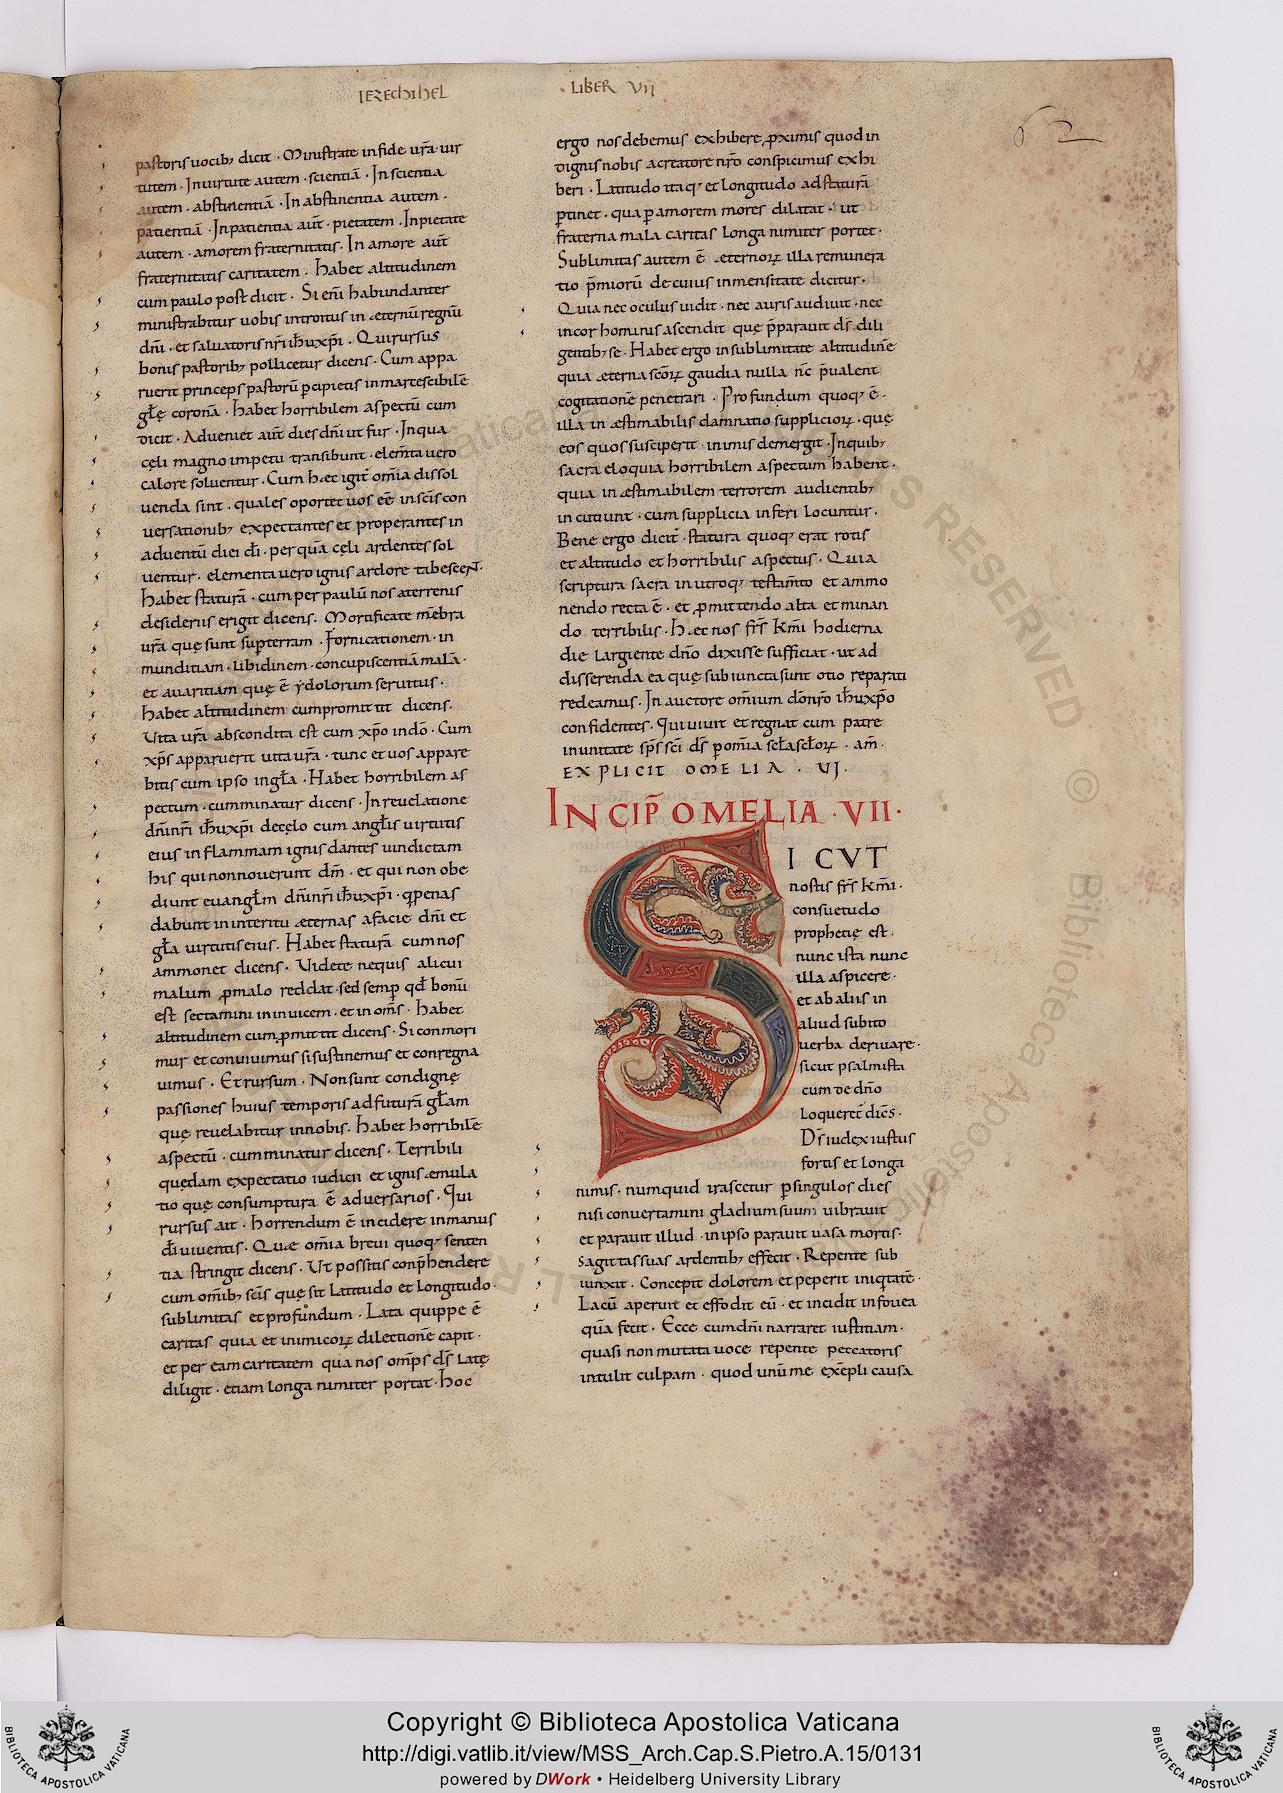 IEZECHIHEL
LIBER VII
62
pastoris uocib; dicit · Ministrate in fide ur̄a uir
tutem · In uirtute autem · scientiā · In scientia
autem · abstinentiā · In abstinentia autem ·
patientiā · In patientia aut̄ · pietatem · In pietate
autem · amorem fraternitatis · In amore aut̄
fraternitatis caritatem · habet altitudinem
cum paulo post dicit · Si eni habundanter
ministrabitur uobis introitus in æternū regnū
dn̄i · et saluatoris nr̄i ih̄uxp̄i · Qui rursus
bonis pastorib; pollicetur dicens · Cum appa
ruerit princeps pastorū percipietis inmarcescibilē
gl̄ę coronā · habet horribilem aspectū cum
dicit · Adueniet aut̄ dies dn̄i ut fur · In qua
cęli magno impetu transibunt · elem̄ta uero
calore soluentur · Cum hæc igit̄ om̄ia dissol
uenda sint · quales oportet uos eē in sc̄is con
uersationib; expectantes et properantes in
aduentū diei dī · per quā cęli ardentes sol
uentur · elementa uero ignis ardore tabescent ·
habet staturā · cum per paulū nos a terrenis
desideriis erigit dicens · Mortificate m̄ebra
ur̄a quę sunt sup terram · fornicationem · in
munditiam · libidinem · concupiscentiā malā ·
et auaritiam quę ē ydolorum seruitus ·
habet altitudinem cum promittit dicens ·
Uita ur̄a abscondita est cum xp̄o in dō · Cum
xp̄s apparuerit uita ur̄a · tunc et uos appare
bitis cum ipso in gl̄a · habet horribilem as
pectum · cum minatur dicens · In reuelatione
dn̄i nr̄i ih̄uxp̄i de cęlo cum angl̄is uirtutis
eius in flammam ignis dantes uindictam
his qui non nouerunt dm̄ · et qui non obe
diunt euangl̄m dn̄i nr̄i ih̄uxp̄i · q penas
dabunt in interitu æternas a facie dn̄i et
gl̄a uirtutis eius · habet staturā cum nos
ammonet dicens · Uidete ne quis alicui
malum p malo reddat · sed semp qd̄ bonū
est sectamini in inuicem · et in om̄s · habet
altitudinem cum pmittit dicens · Si conmori
mur et conuiuimus si sustinemus et conregna
uimus · Et rursum · Non sunt condignę
passiones huius temporis ad futurā gl̄am
quę reuelabitur in nobis · habet horribilē
aspectū · cum minatur dicens · Terribili
quędam expectatio iudicii et ignis æmula
tio quę consumptura ē aduersarios · Qui
rursus ait · horrendum ē incidere in manus
dī uiuentis · Quæ om̄ia breui quoq; senten
tia stringit dicens · Ut possitis conp̄hendere
cum om̄ib; sc̄is quę sit latitudo et longitudo ·
sublimitas et profundum · Lata quippe ē
caritas quia et inimicorꝝ dilectionē capit ·
et per eam caritatem qua nos omp̄s ds̄ latę
diligit · etiam longanimiter portat · hoc
ergo nos debemus exhibere pximis quod in
dignis nobis a creatore nr̄o conspicimus exhi
beri · Latitudo itaq; et longitudo ad staturā
ptinet · qua p amorem mores dilatat · ut
fraterna mala caritas longanimiter portet ·
Sublimitas autem ē æternorꝝ illa remunera
tio p̄miorū de cuius inmensitate dicitur ·
Quia nec oculus uidit · nec auris audiuit · nec
in cor hominis ascendit quę p̄parauit ds̄ dili
gentib; se · Habet ergo in sublimitate altitudinē
quia æterna sc̄orꝝ gaudia nulla nc̄ p̄ualent
cogitatione penetrari · Profundum quoq; ē ·
illa inæstimabilis damnatio suppliciorꝝ · quę
eos quos susciperit · in imis demergit · In quib;
sacra eloquia horribilem aspectum habent ·
quia inæstimabilem terrorem audientib;
incutiunt · cum supplicia inferi locuntur ·
Bene ergo dicit̄ · statura quoq; erat rotis
et altitudo et horribilis aspectus · Quia
scriptura sacra in utroq; testam̄to et ammo
nendo recta ē · et pmittendo alta et minan
do terribilis · Hæc nos fr̄s km̄i hodierna
die largiente dn̄o dixisse sufficiat · ut ad
disserenda ea quę subiuncta sunt otio reparati
redeamus · In auctore om̄ium dōnr̄o ih̄uxp̄o
confidentes · Qui uiuit et regnat cum patre
in unitate sp̄s sc̄i ds̄ p om̄ia sc̄la sc̄lorꝝ · am̄ ·
EXPLICIT OMELIA · VI ·
INCIP̄ OMELIA · VII ·
SICVT
nostis fr̄s km̄i ·
consuetudo
prophetię est ·
nunc ista nunc
illa aspicere ·
et ab aliis in
aliud subito
uerba deriuare ·
sicut psalmista
cum de dn̄o
loqueret̄ dic̄s ·
Ds̄ iudex iustus
fortis et longa
nimis · numquid irascetur p singulos dies
nisi conuertamini gladium suum uibrauit
et parauit illud · in ipso parauit uasa mortis ·
Sagittas suas ardentib; effecit · Repente sub
iunxit · Concepit dolorem et peperit iniqtatē ·
Lacū aperuit et effodit eū · et incidit in fouea
quā fecit · Ecce cum dn̄i narraret iustitiam ·
quasi non mutata uoce repente peccatoris
intulit culpam · quod unū me exēpli causa
Copyright © Biblioteca Apostolica Vaticana
http://digi.vatlib.it/view/MSS_Arch.Cap.S.Pietro.A.15/0131
powered by DWork • Heidelberg University Library
BIBLIOTECA APOSTOLICA VATICANA
BIBLIOTECA APOSTOLICA VATICANA